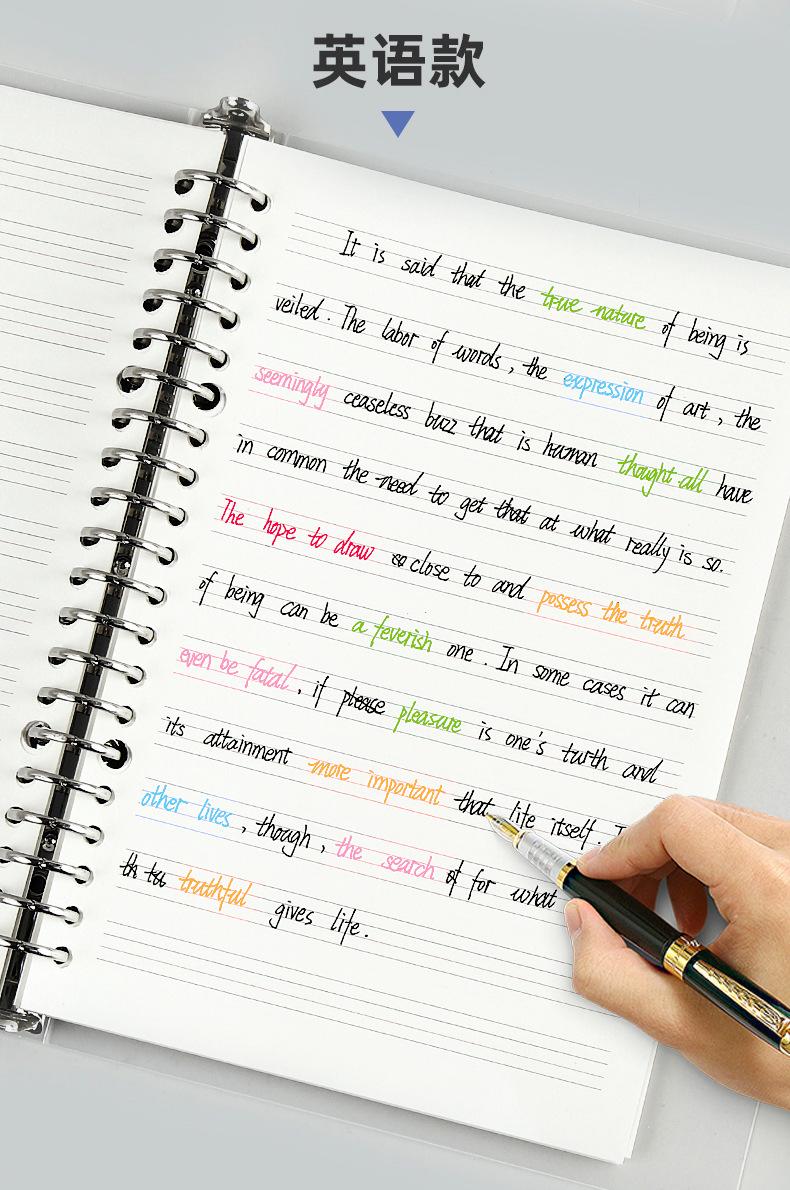 英语款
It is said that the true nature of being is
veiled. The labor of words, the expression of art, the
seemingly ceaseless buzz that is human thought all have
in common the need to get that at what really is so.
The hope to draw so close to and possess the truth
of being can be a feverish one. In some cases it can
even be fatal, if please pleasure is one's turth and
its attainment more important that life itself.
other lives, though, the search of for what
truthful gives life.